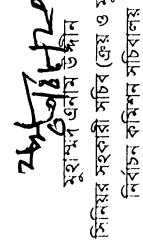 মুহাম্মদ এনাম উদ্দীন
সিনিয়র সহকারী সচিব (ক্রয় ও
নির্বাচন কমিশন সচিবালয়